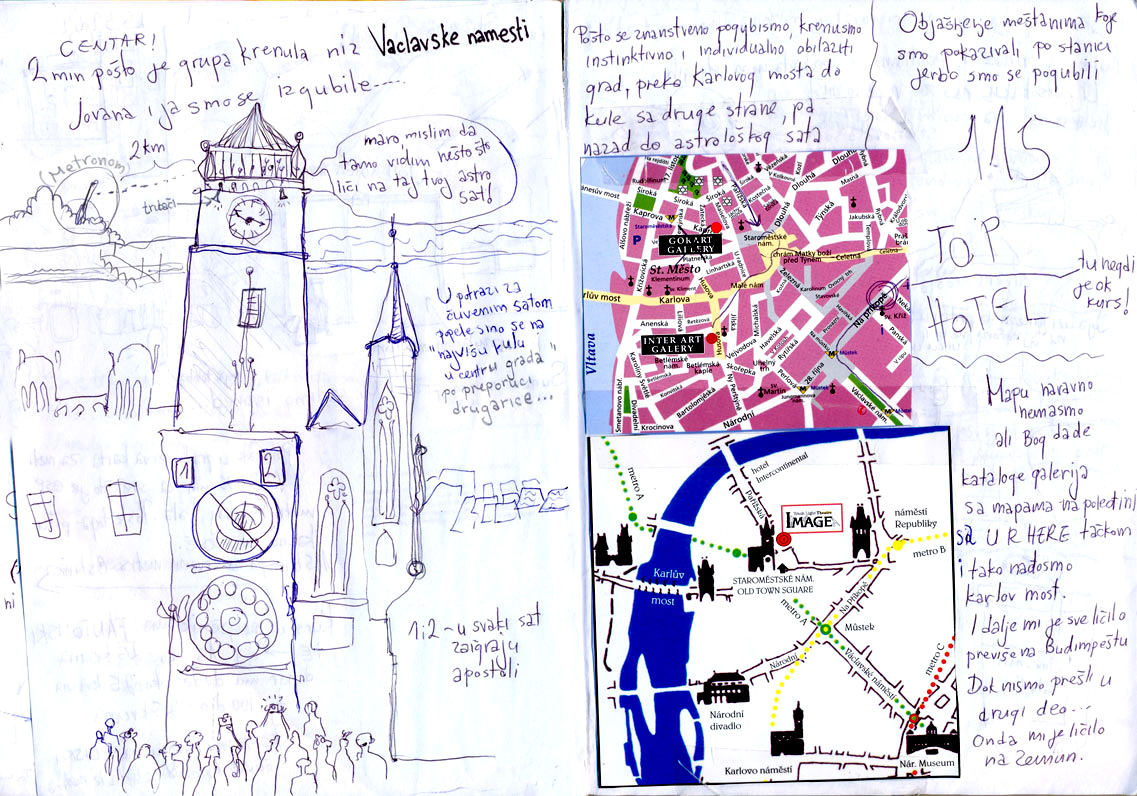 CENTAR!
2 min pošto je grupa krenula niz Vaclavske namesti
Jovana i ja smo se izgubile....
2 km
(Metronom)
trubači
maro, mislim da
tamo vidim nešto što
liči na taj tvoj astro
sat!
U potrazi za
čuvenim satom
popele smo se na
"najvišu kulu
u centru grada"
po preporuci
drugarice...
1
2
1 i 2 ~ u svaki sat
zaigraju
apostoli
Pošto se znanstveno pogubismo, krenusmo
instinktivno i individualno obilaziti
grad, preko Karlovog mosta do
kule sa druge strane, pa
nazad do astrološkog sata
Objašnjenje meštanima koje
smo pokazivali po stanici
jerbo smo se pogubili
115
TOP
HOTEL
tu negdi
je ok
kurs!
Mapu naravno
nemasmo
ali Bog dade
kataloge galerija
sa mapama na poleđini
sa U R HERE tačkom
i tako nađosmo
karlov most.
I dalje mi je sve ličilo
previše na Budimpeštu
Dok nismo prešli u
drugi deo...
Onda mi je ličilo
na Zemun.
Na rejdišti
17. listop
Rudolfinum
Široká
Široká
Kaprova
Staroměstská
Alšovo nábřeží
Křižovnická
P
M
GOKART
GALLERY
Platnéřská
Linhartská
St. Město
Klementinum
sv. Kliment
Karlova
Husova
Malé nám.
Staroměstské
nám.
chrám Matky boží
před Týnem
Celetná
Celetná
Dlouhá
Dlouhá
Týnská
Jakubská
Masná
V Kolkovně
Vězeňská
Kozí
Kostečná
Železná
Karolinum
Stavovské
Ovocný trh
Na příkopě
sv. Kříž
Panská
Anenská
Liliová
Řetězová
Jilská
Michalská
INTER ART
GALERY
Husova
Vejvodova
Betlémské
nám.
Betlémská
kaple
Skořepka
Uhelný
trh
Rytířská
Havelská
Perlová
28. října
Můstek
Můstek
Můstek
Konviktská
Bartolomějská
Na Perštýně
sv.
Martin
Jungmannova
Národní
Krocínova
Divadelní
Smetanovo nábř.
Karoliny Světlé
Vltava
Václavské nám.
metro A
hotel
Intercontinental
Pařížská
Black Light Theatre
IMAGE
náměstí
Republiky
metro B
STAROMĚSTSKÉ NÁM.
OLD TOWN SGUARE
Karlův
most
metro A
Na Příkopě
Můstek
Národní
Václavské náměstí
metro C
Národní
divadlo
Karlovo náměstí
Nár. Museum